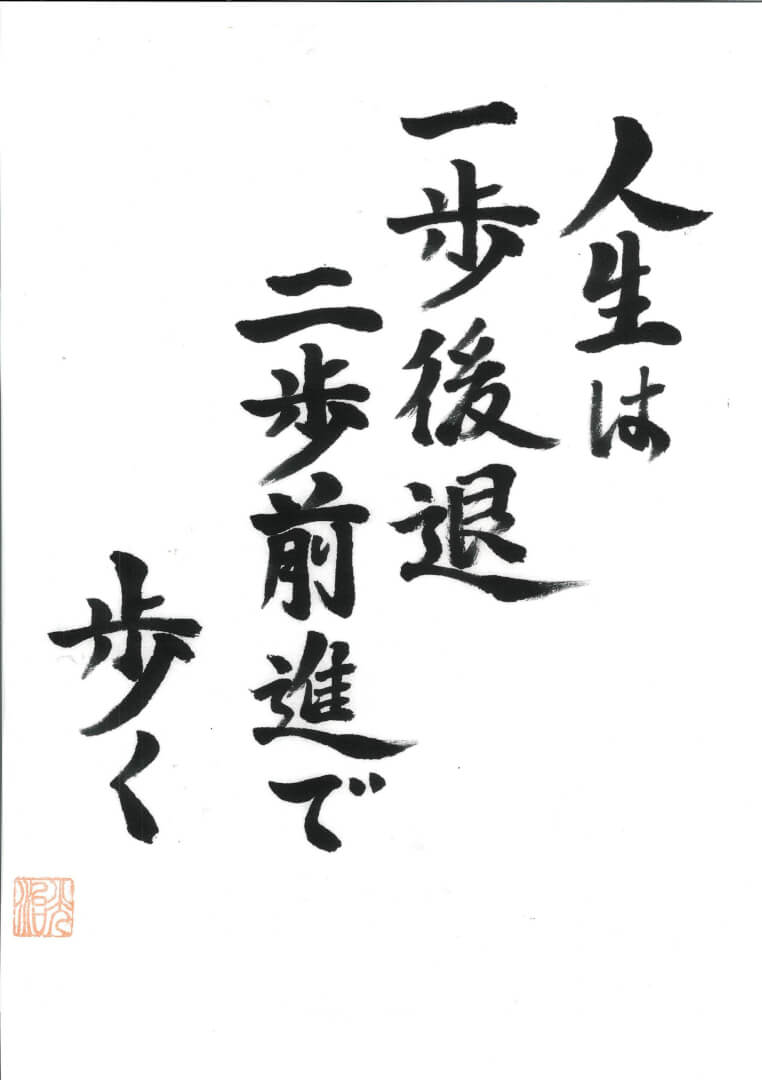 人生は
一歩後退
二歩前進で
歩く